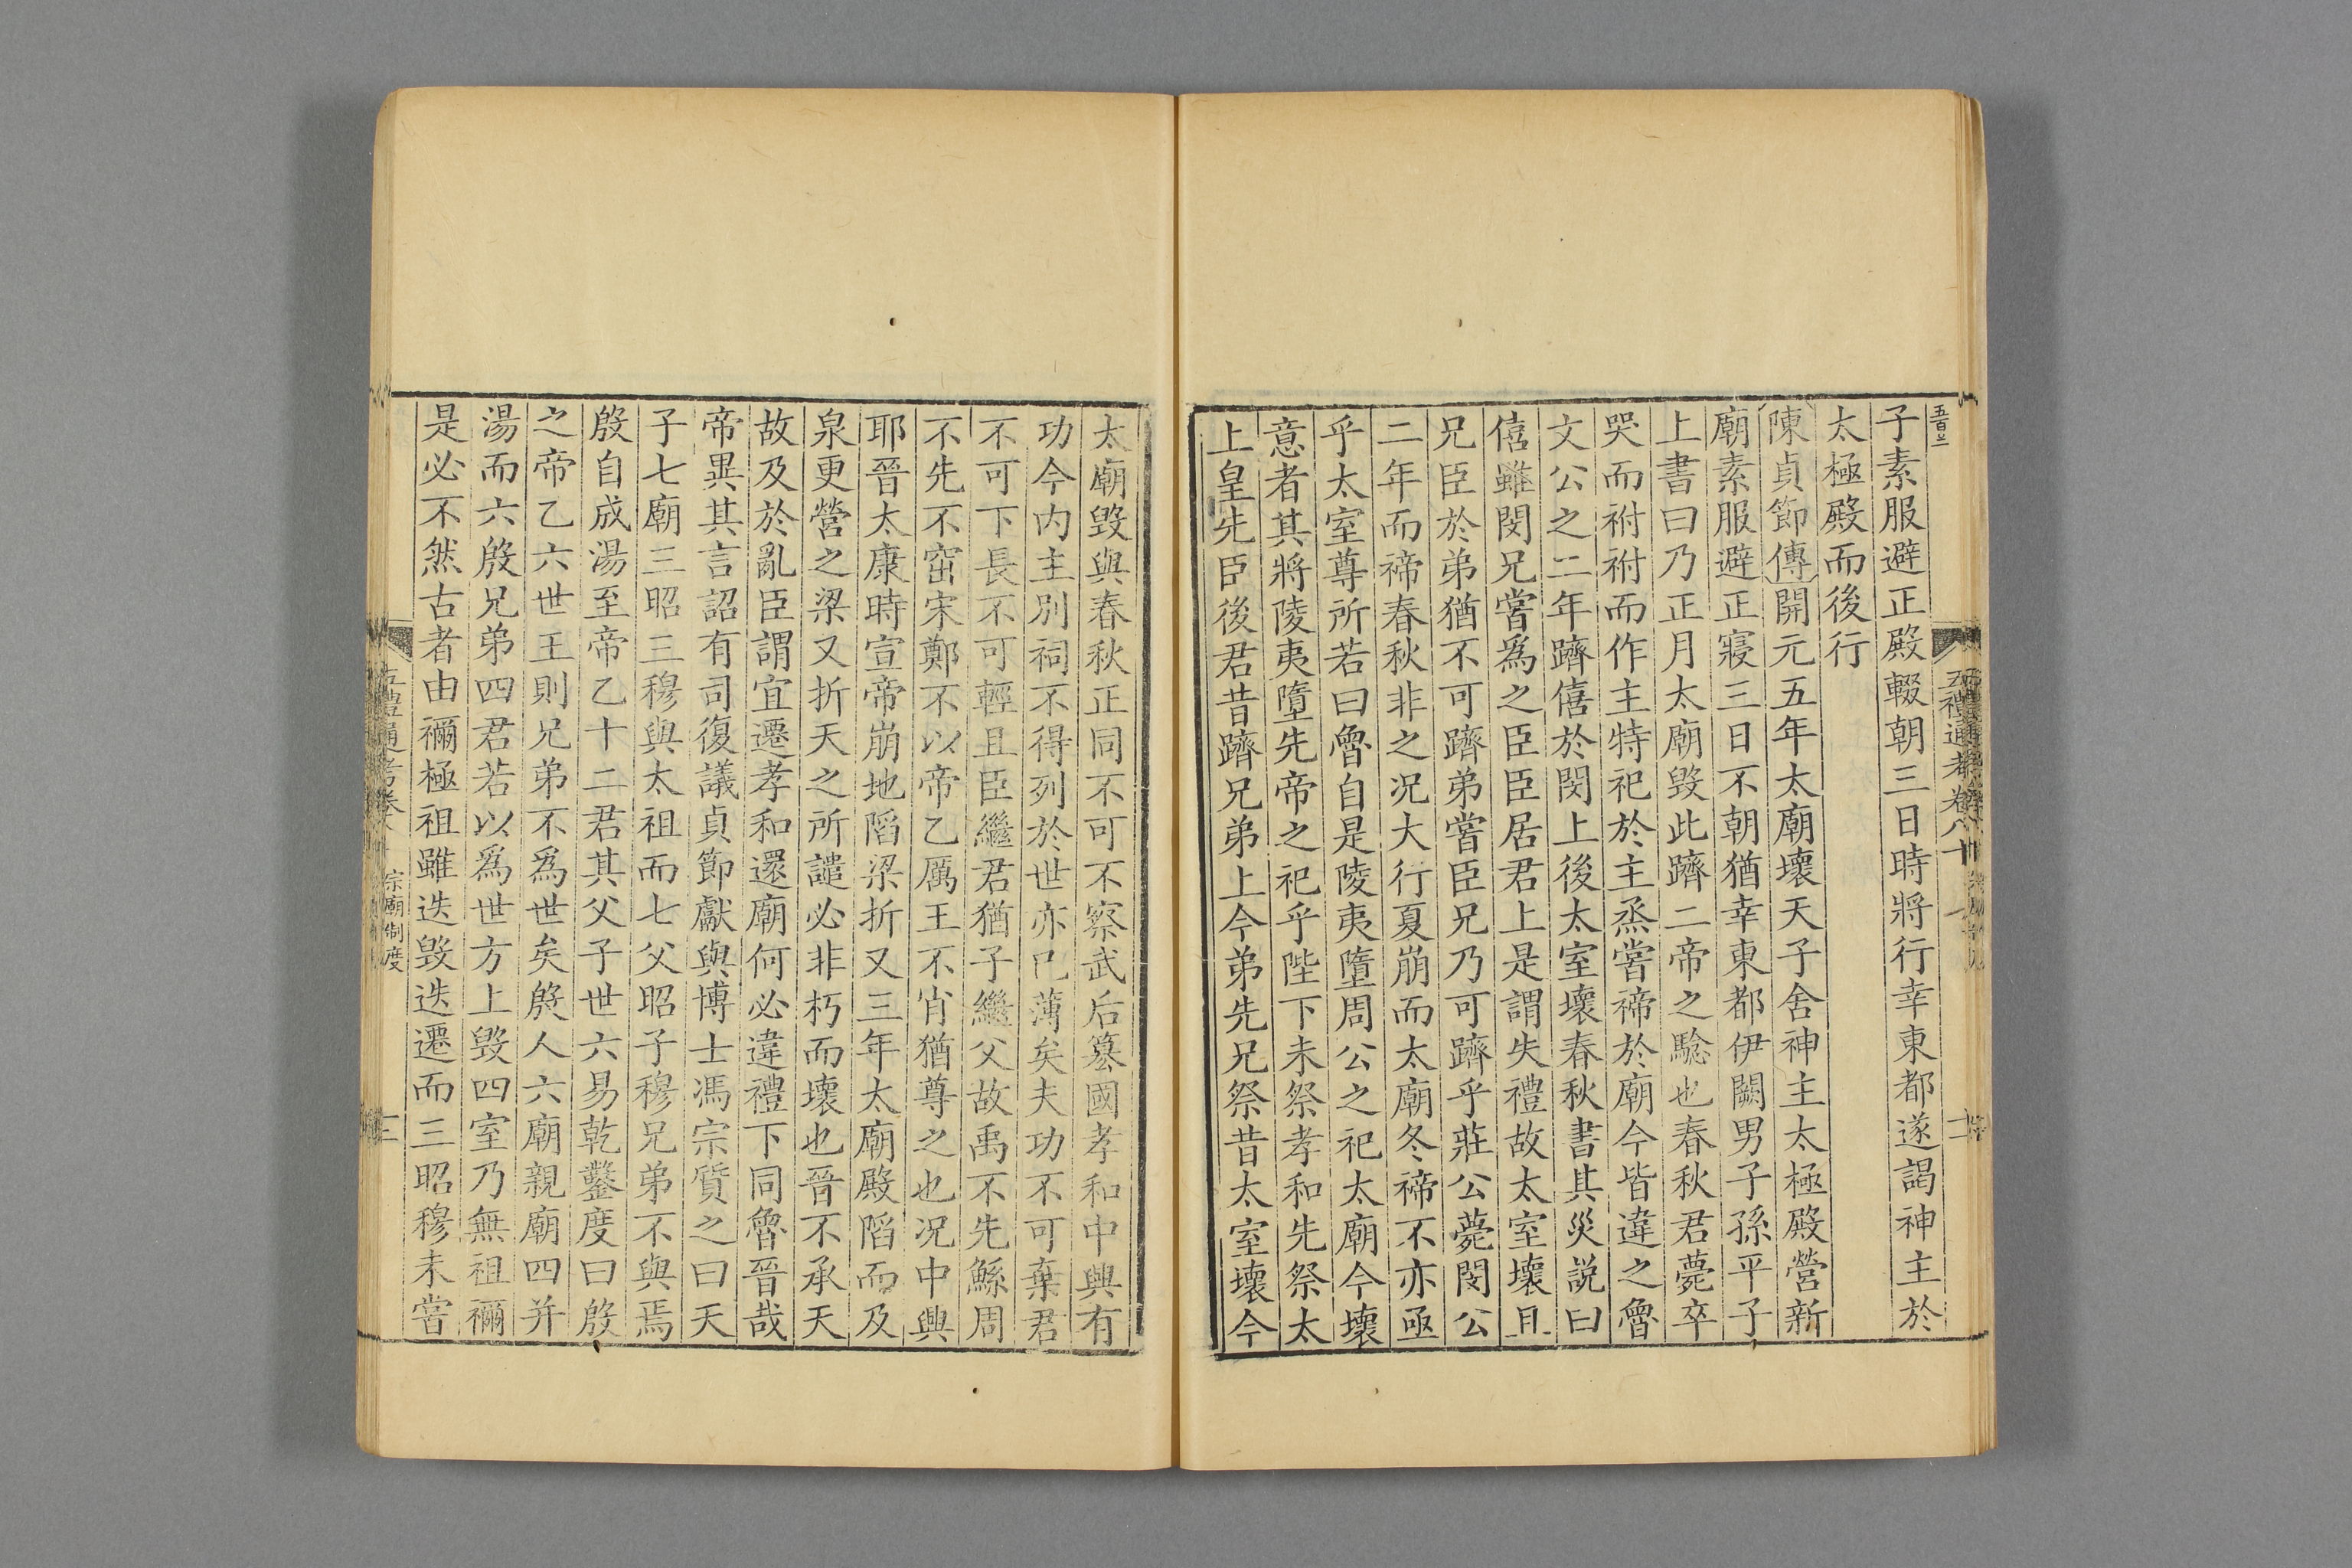 五礼通考卷八十
子素服避正殿輟朝三日時將行幸東都遂謁神主於
太極殿而後行
陳貞節傳開元五年太廟壞天子舍神主太極殿營新
廟素服避正寢三日不朝猶幸東都伊闕男子孫平子
上書曰乃正月太廟毀此躋二帝之驗也春秋君薨卒
哭而祔祔而作主特祀於主烝嘗禘於廟今皆違之魯
文公之二年躋僖於閔上後太室壞春秋書其災說曰
僖雖閔兄嘗爲之臣臣居君上是謂失禮故太室壞且
兄臣於弟猶不可躋弟嘗臣兄乃可躋乎莊公薨閔公
二年而禘春秋非之况大行夏崩而太廟冬禘不亦亟
乎太室尊所若曰魯自是陵夷墮周公之祀太廟今壞
意者其將陵夷墮先帝之祀乎陛下未祭孝和先祭太
上皇先臣後君昔躋兄弟上今弟先兄祭昔太室壞今
太廟毀與春秋正同不可不察武后篡國孝和中興有
功今内主別祠不得列於世亦已薄矣夫功不可棄君
不可下長不可輕且臣繼君猶子繼父故禹不先鯀周
不先不窋宋鄭不以帝乙厲王不肖猶尊之也况中興
耶晉太康時宣帝崩地陷梁折又三年太廟殿陷而及
泉更營之梁又折天之所譴必非朽而壞也晉不承天
故及於亂臣謂宜遷孝和還廟何必違禮下同魯晉哉
帝異其言詔有司復議貞節獻與博士馮宗質之曰天
子七廟三昭三穆與太祖而七父昭子穆兄弟不與焉
殷自成湯至帝乙十二君其父子世六易乾鑿度曰殷
之帝乙六世王則兄弟不爲世矣殷人六廟親廟四并
湯而六殷兄弟四君若以爲世方上毀四室乃無祖禰
是必不然古者由禰極祖雖迭毀迭遷而三昭穆未嘗
宗廟制度